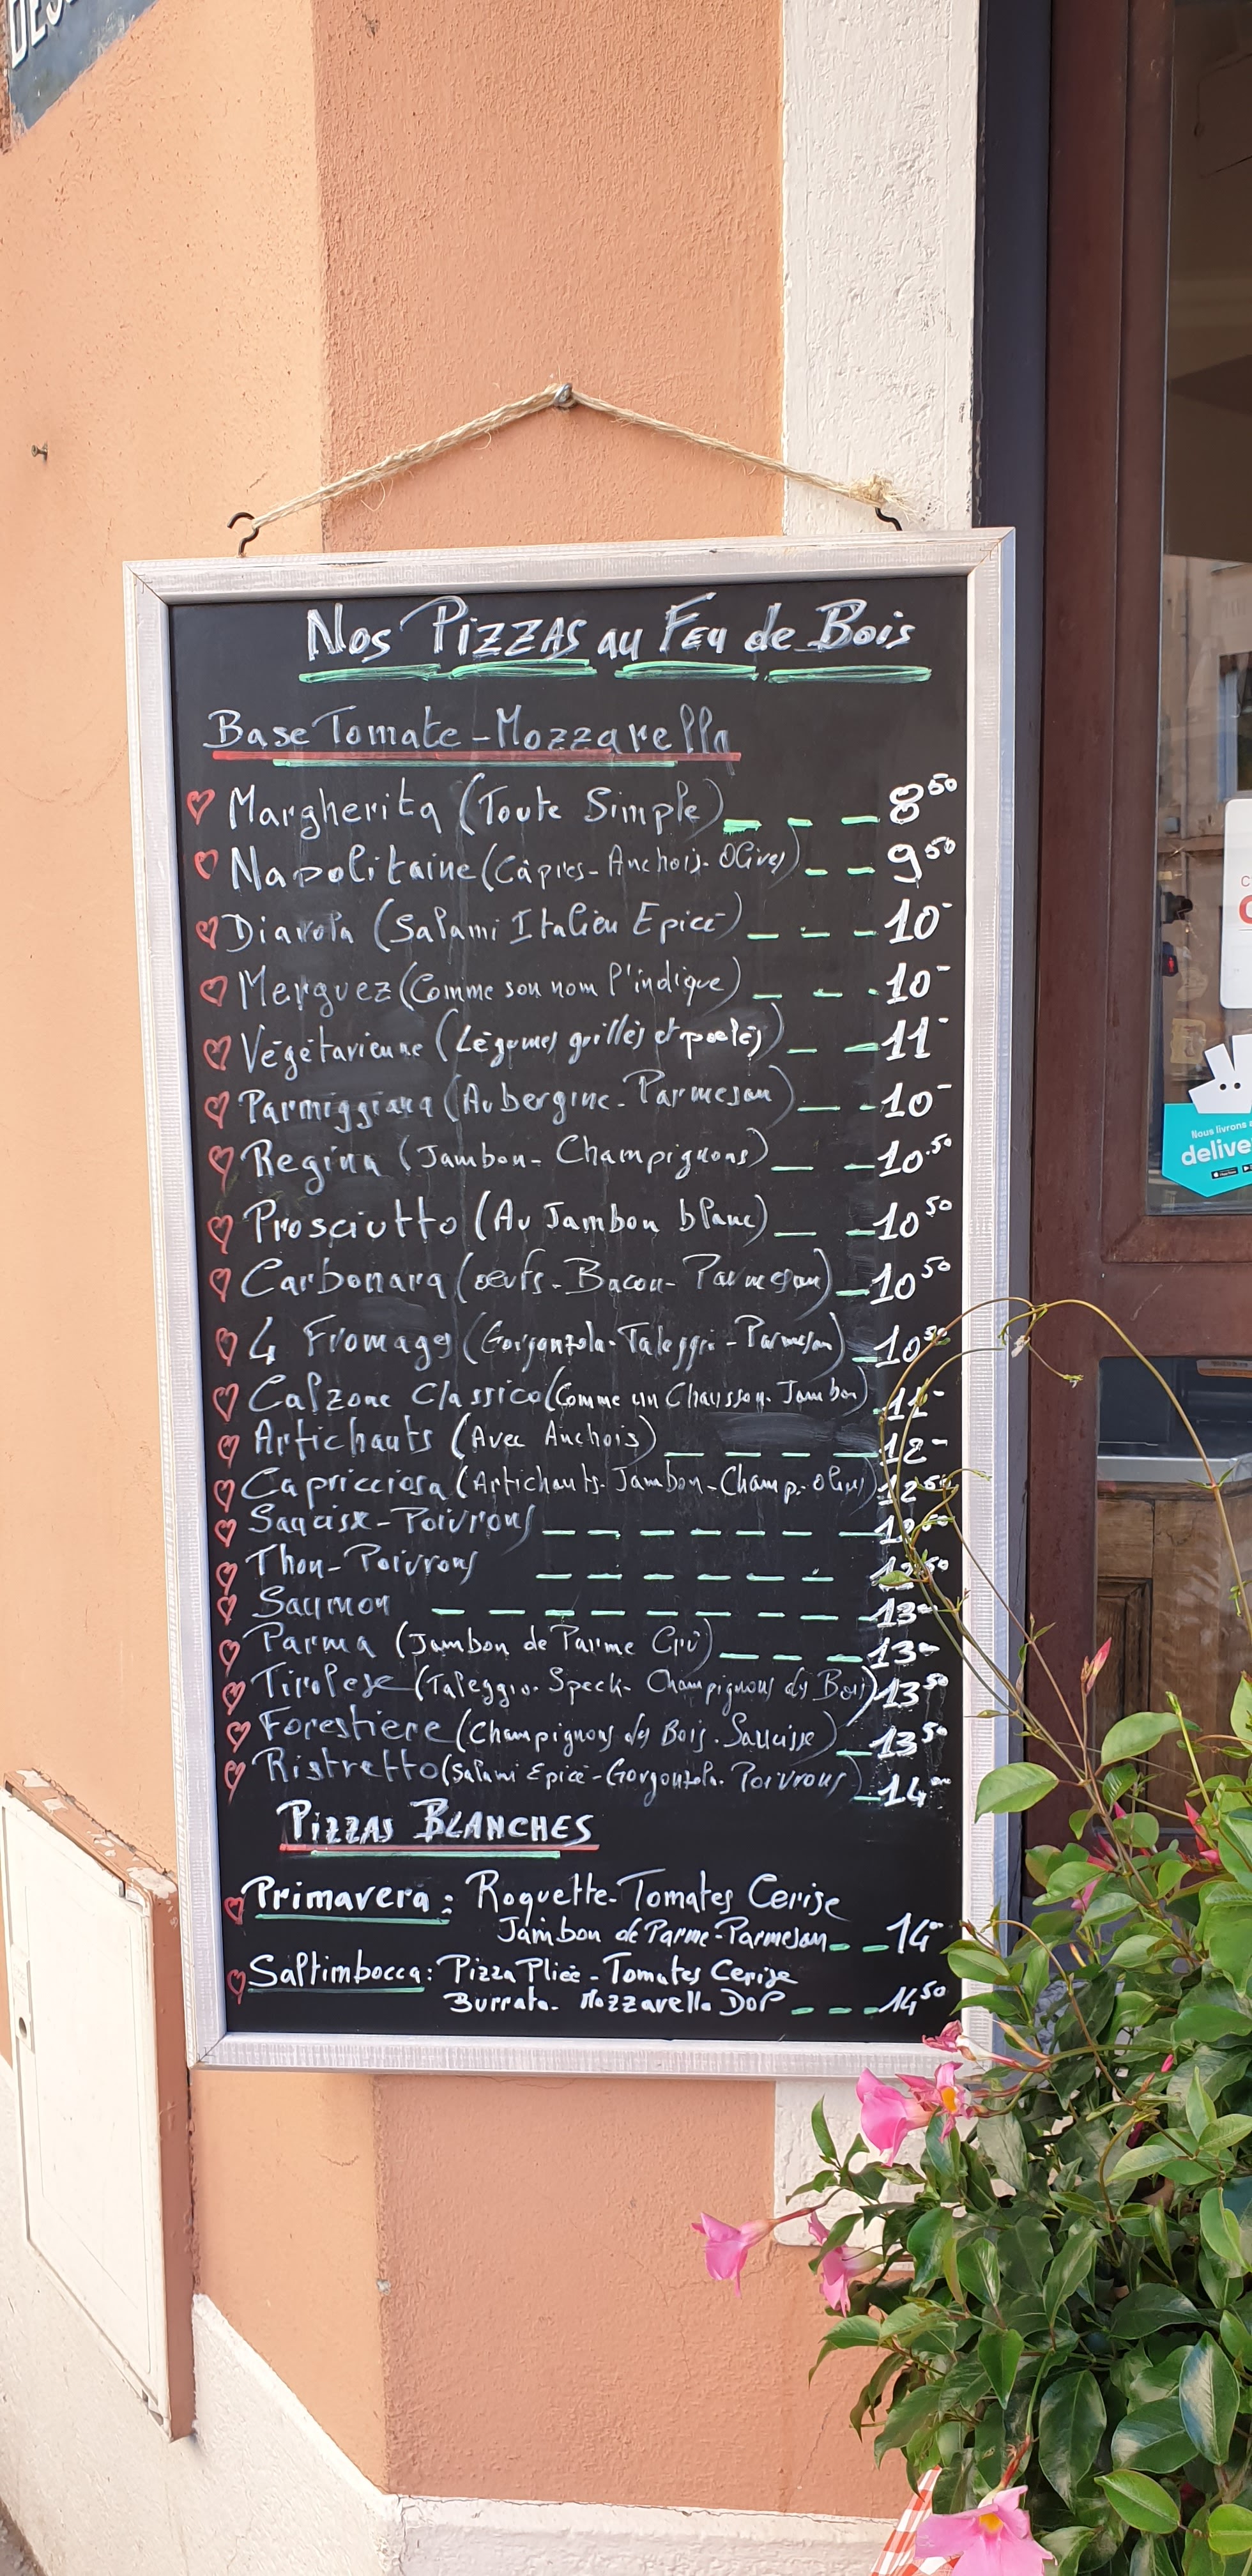 Nos Pizzas au Feu de Bois
Base Tomate-Mozzarella
Margherita (Toute Simple) 8 50
Napolitaine (Câpres-Anchois-Olives) 9 50
Diavola (Salami Italien Epicé) 10-
Merguez (Comme son nom l'indique) 10-
Végétarienne (Légumes grillés et poelés) 11-
Parmiggiana (Aubergine-Parmesan) 10-
Regina (Jambon-Champignons) 10.50
Prosciutto (Au Jambon blanc) 10 50
Carbonara (œufs-Bacon-Parmesan) 10 50
4 Fromages (Gorgonzola-Taleggio-Parmesan) 10 50
Calzone Classico (Comme un Chausson-Jambon) 11-
Artichauts (Avec Anchois) 12-
Capricciosa (Artichauts-Jambon-Champ.-Olives) 12 50
Saucisse-Poivrons
Thon-Poivrons
Saumon 13-
Parma (Jambon de Parme Crû) 13-
Tirolese (Taleggio-Speck-Champignons ds Bois) 13 50
Forestiere (Champignons ds Bois-Saucisse) 13 50
Ristretto (Salami Epicé-Gorgonzola-Poivrons) 14
Pizzas Blanches
Primavera : Roquette-Tomates Cerise
Jambon de Parme-Parmesan 14-
Saltimbocca : Pizza Pliée-Tomates Cerise
Burrata-Mozzarella DOP 14 50
Nous livrons
delive